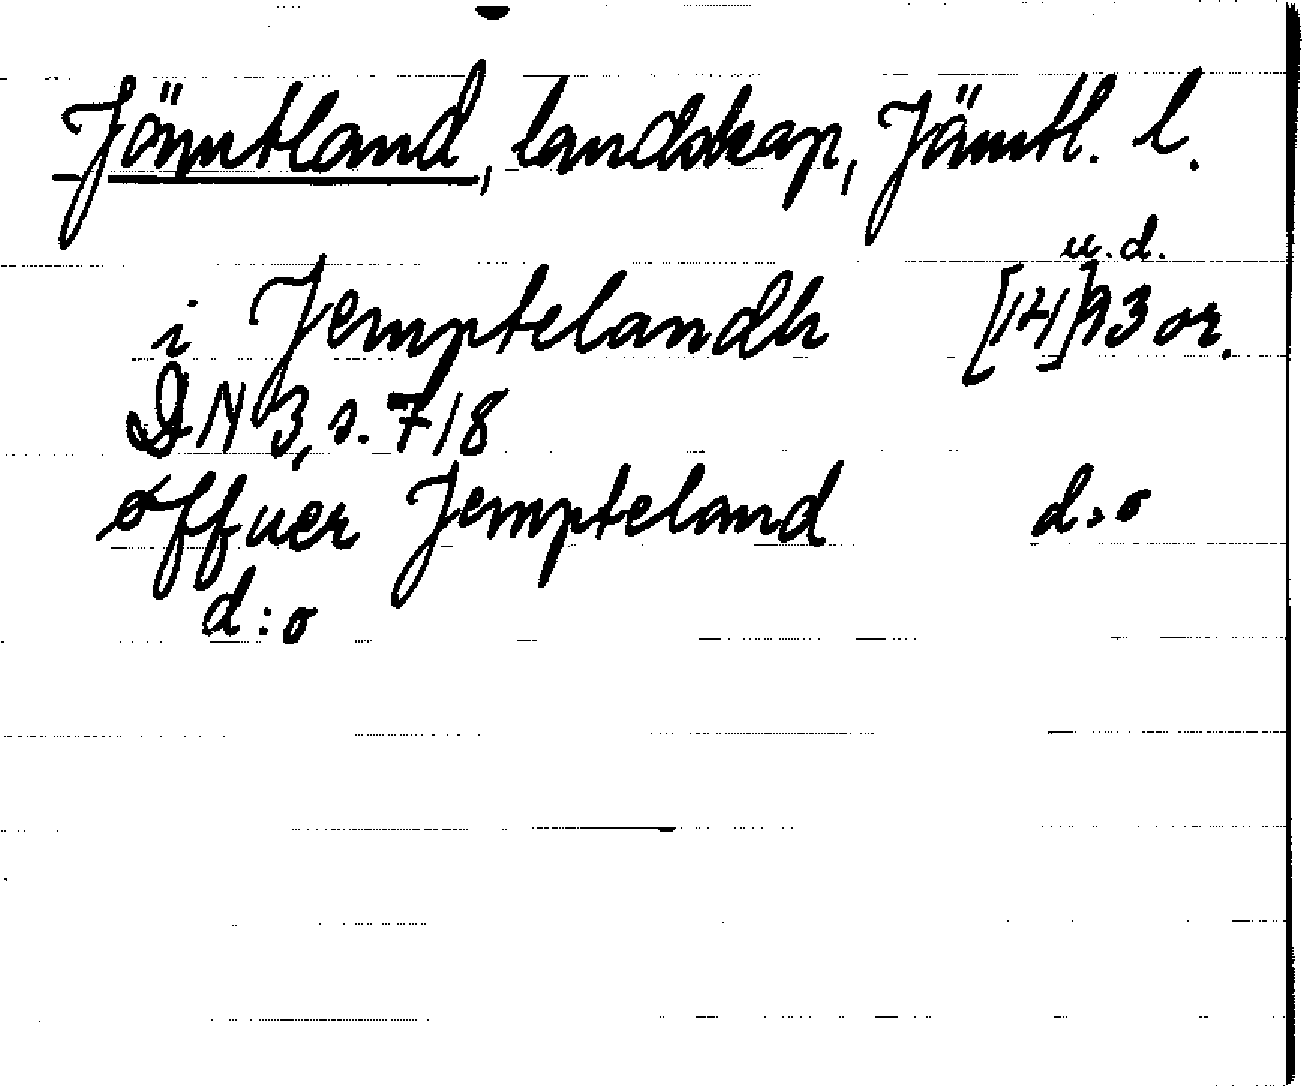 Jämtland, landskap, Jämtl. l.
u.d.
i Jemptelandh [14]93 or.
DN 3, s. 718
øffuer Jempteland d:o
d:o